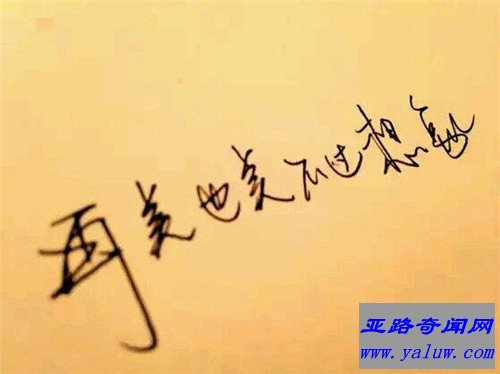 再美也美不过想象
亚路奇闻网
www.yaluw.com